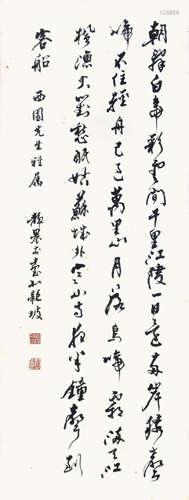 朝辭白帝彩雲間千里江陵一日還兩岸猿聲
啼不住輕舟已過萬重山月落烏啼霜滿天江
楓漁火對愁眠姑蘇城外寒山寺夜半鐘聲到
客船 西園先生雅屬
靜農于臺北龍坡